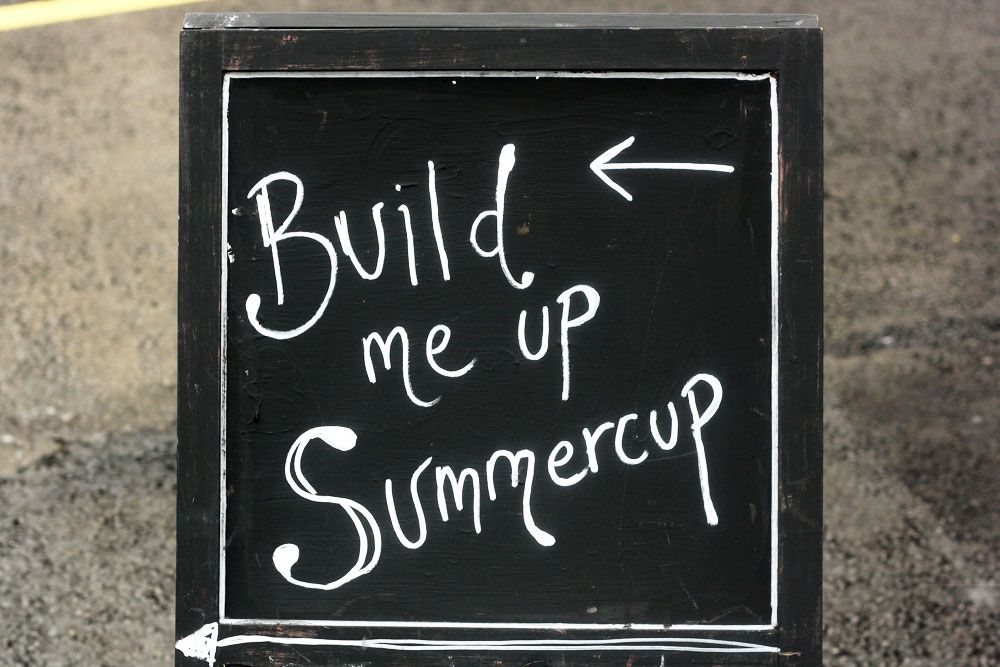 Build
me up
Summercup